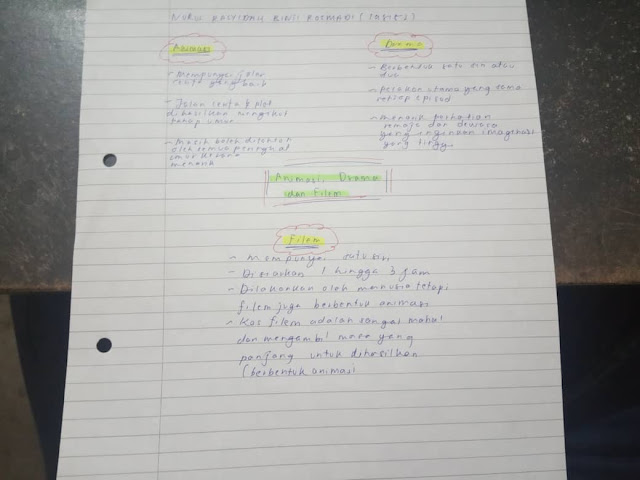 NURUL RASYIDAH BINTI ROSMADI
Animasi
- Mempunyai jalan
cerita yang baik
- Jalan cerita & plot
dihasilkan mengikut
tahap umur
- Masih boleh ditonton
oleh semua peringkat
umur kerana
menarik
Drama
- Berbentuk satu siri atau
dua
- Pelakon utama yang sama
setiap episod
- menarik perhatian
remaja dan dewasa
yang inginkan imaginasi
yang tinggi
Animasi, Drama
dan Filem
Filem
- Mempunyai satu siri
- Disiarkan 1 hingga 3 jam
- Dilakonkan oleh manusia tetapi
filem juga berbentuk animasi
- Kos filem adalah sangat mahal
dan mengambil masa yang
panjang untuk dihasilkan
(berbentuk animasi